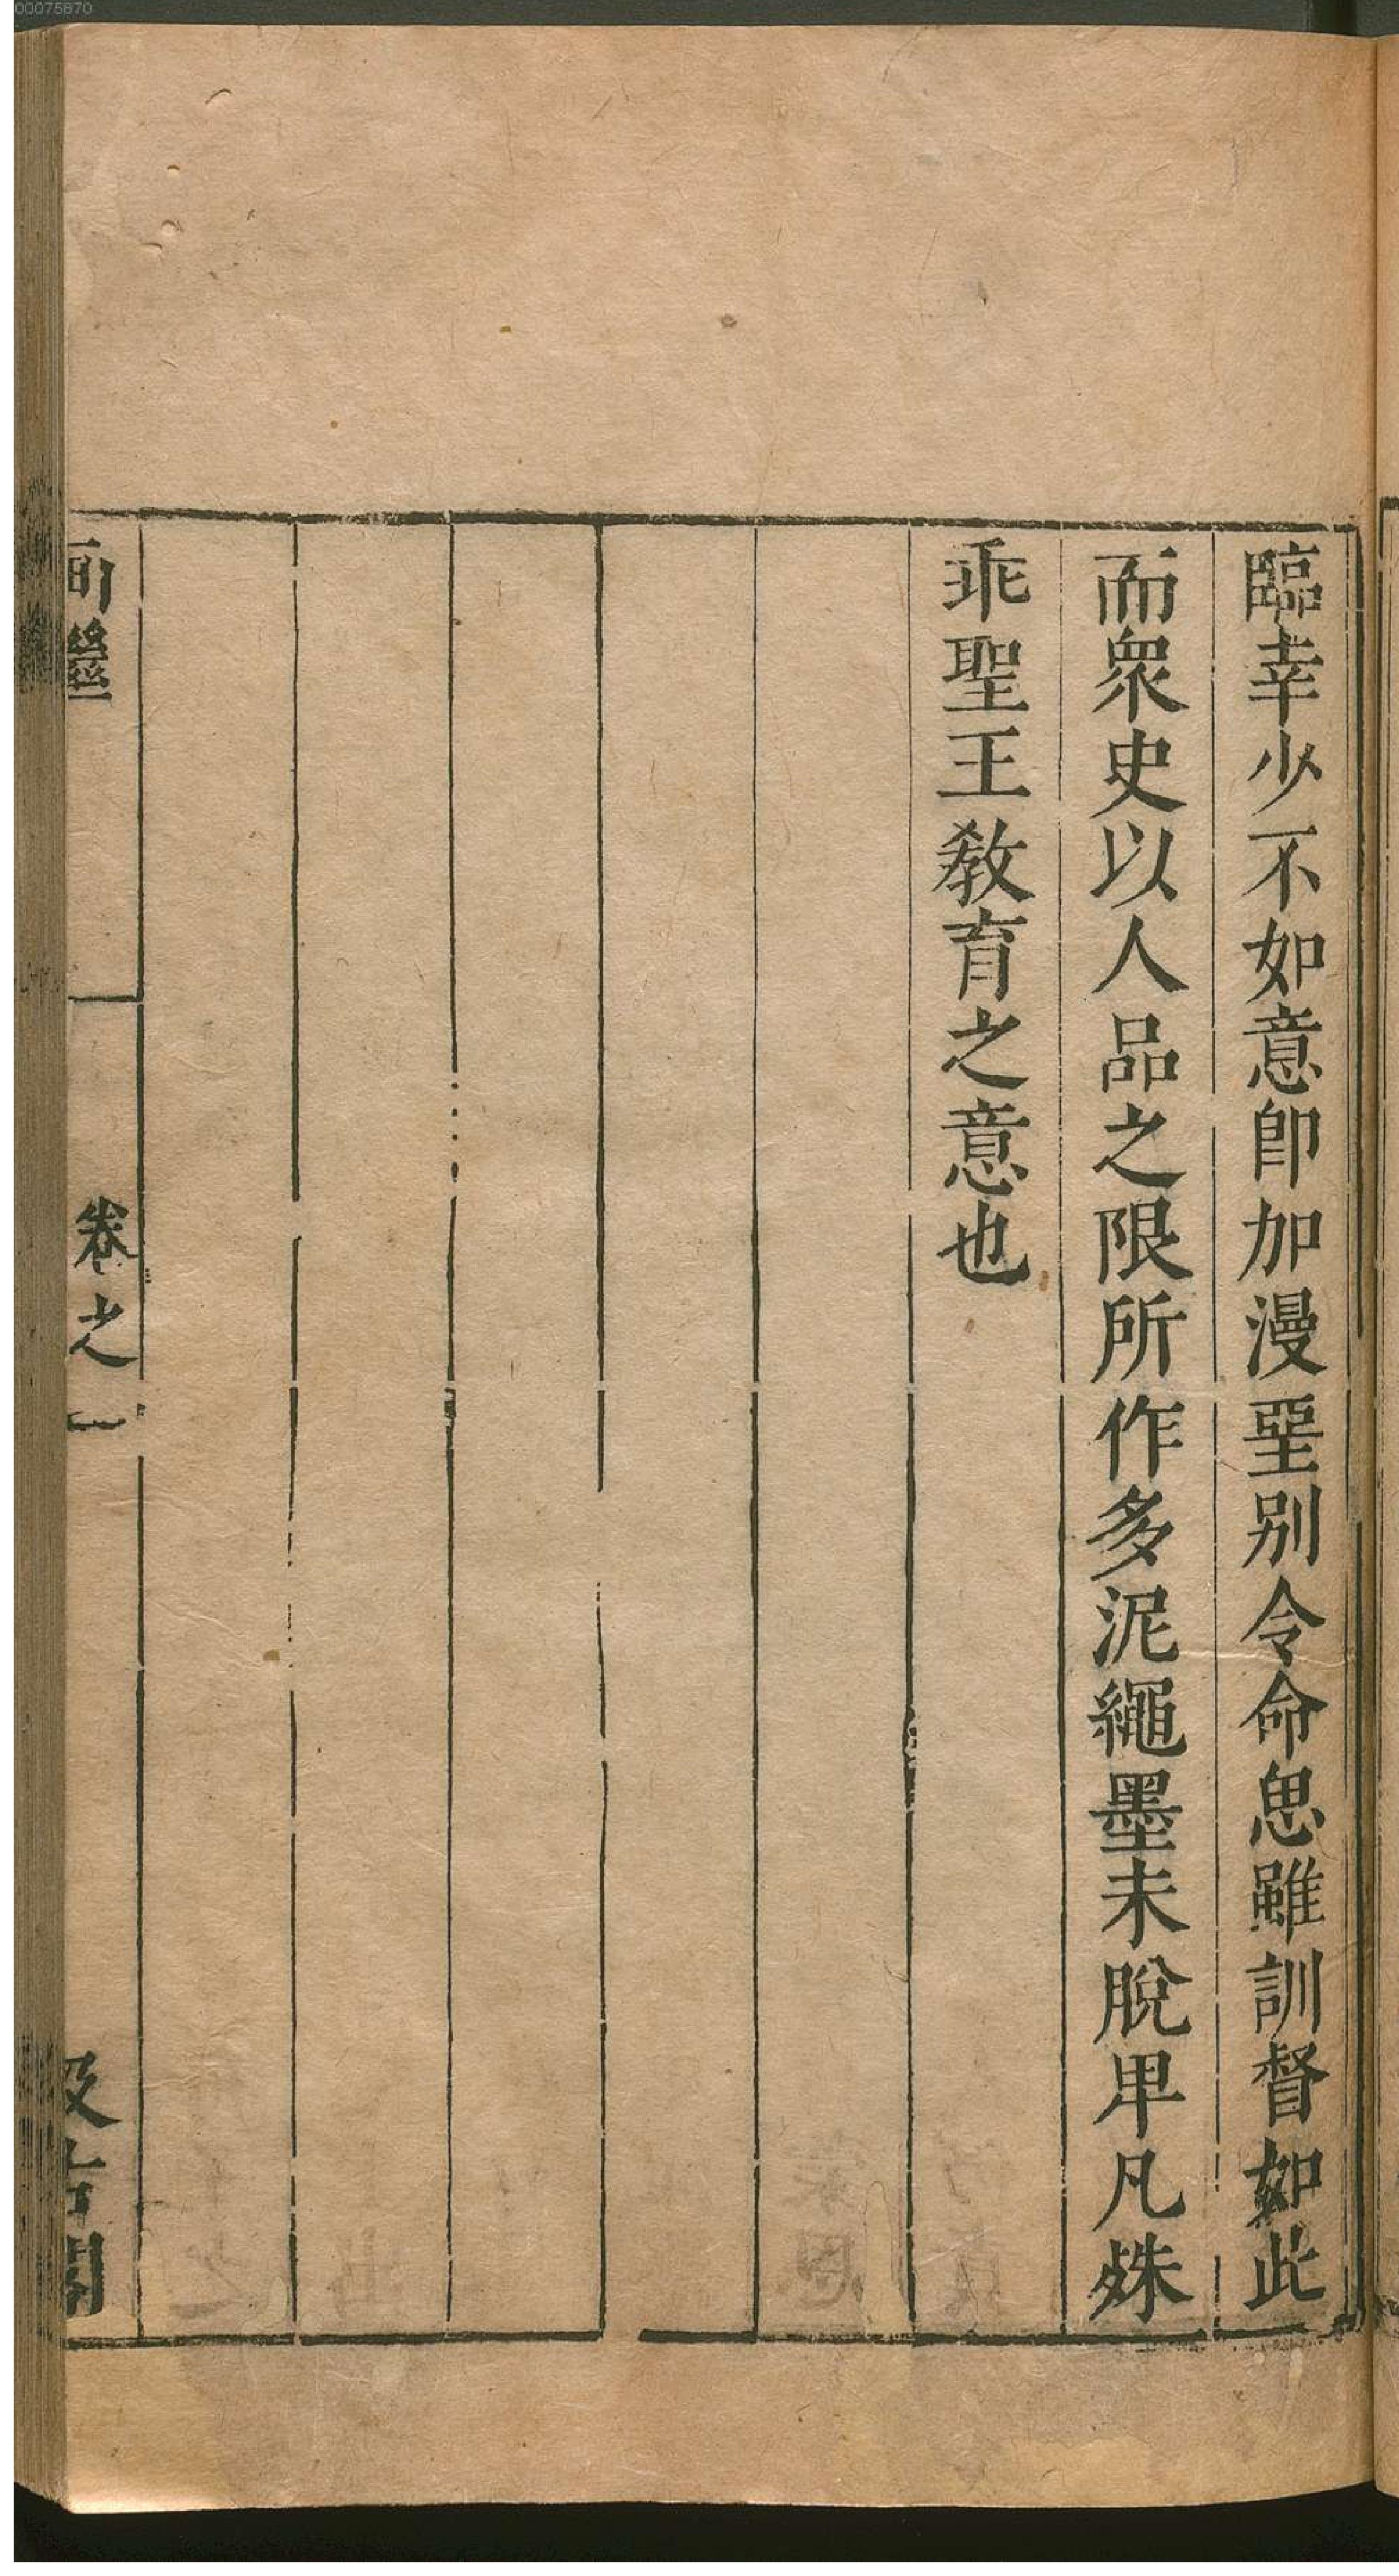 臨幸少不如意卽加漫堊别令命思雖訓督如此
而衆史以人品之限所作多泥繩墨未脫卑凡殊
乖聖王敎育之意也
畫繼
卷之一
汲古閣
00075870